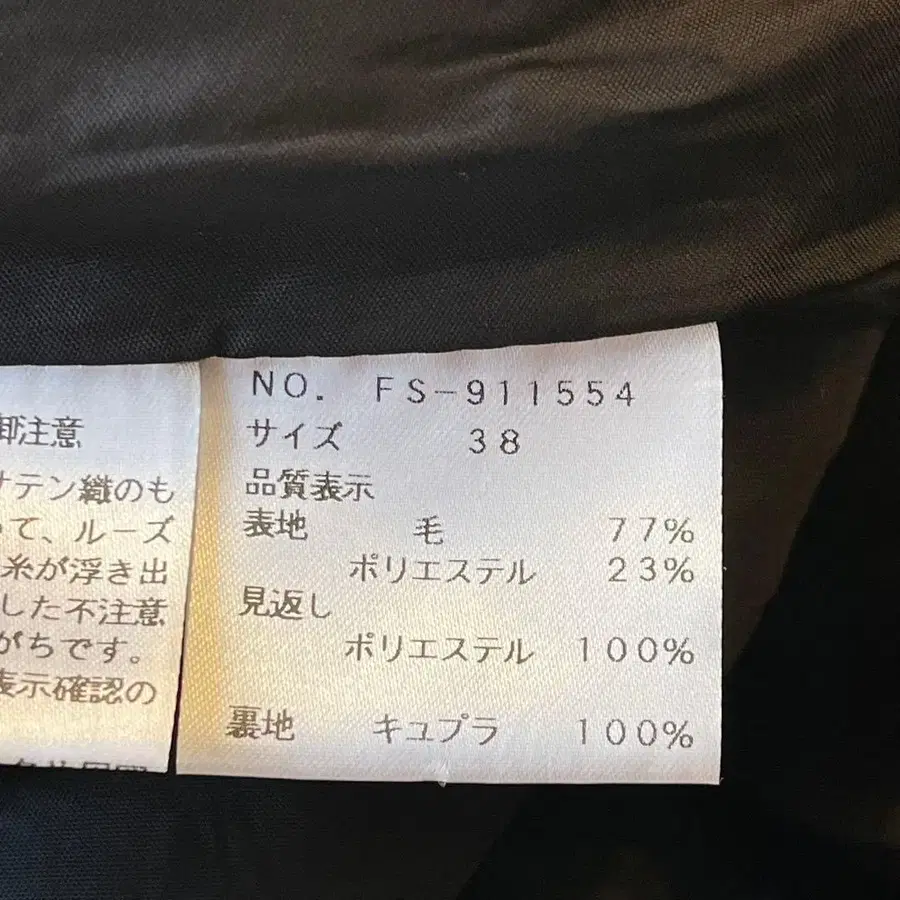 NO. FS-911554
サイズ 38
品質表示
表地 毛 77%
ポリエステル 23%
見返し
ポリエステル 100%
裏地 キュプラ 100%
注意
サテン織のも
って、ルーズ
糸が浮き出
した不注意
がちです。
表示確認の